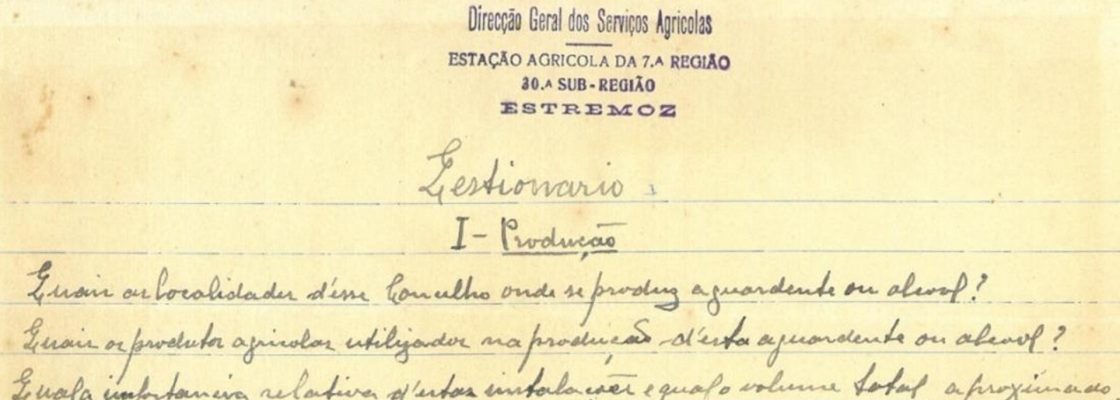 Direcção Geral dos Serviços Agricolas
ESTAÇÃO AGRICOLA DA 7.ᴬ REGIÃO
30.ᴬ SUB-REGIÃO
ESTREMOZ
Questionario
I - Producção
Quais as localidades d'ésse Concelho onde se produz aguardente ou alcool?
Quais os produtos agricolas utilizados na producção d'ésta aguardente ou alcool?
Qual a importancia relativa d'estas instalações e qual o volume total aproximado